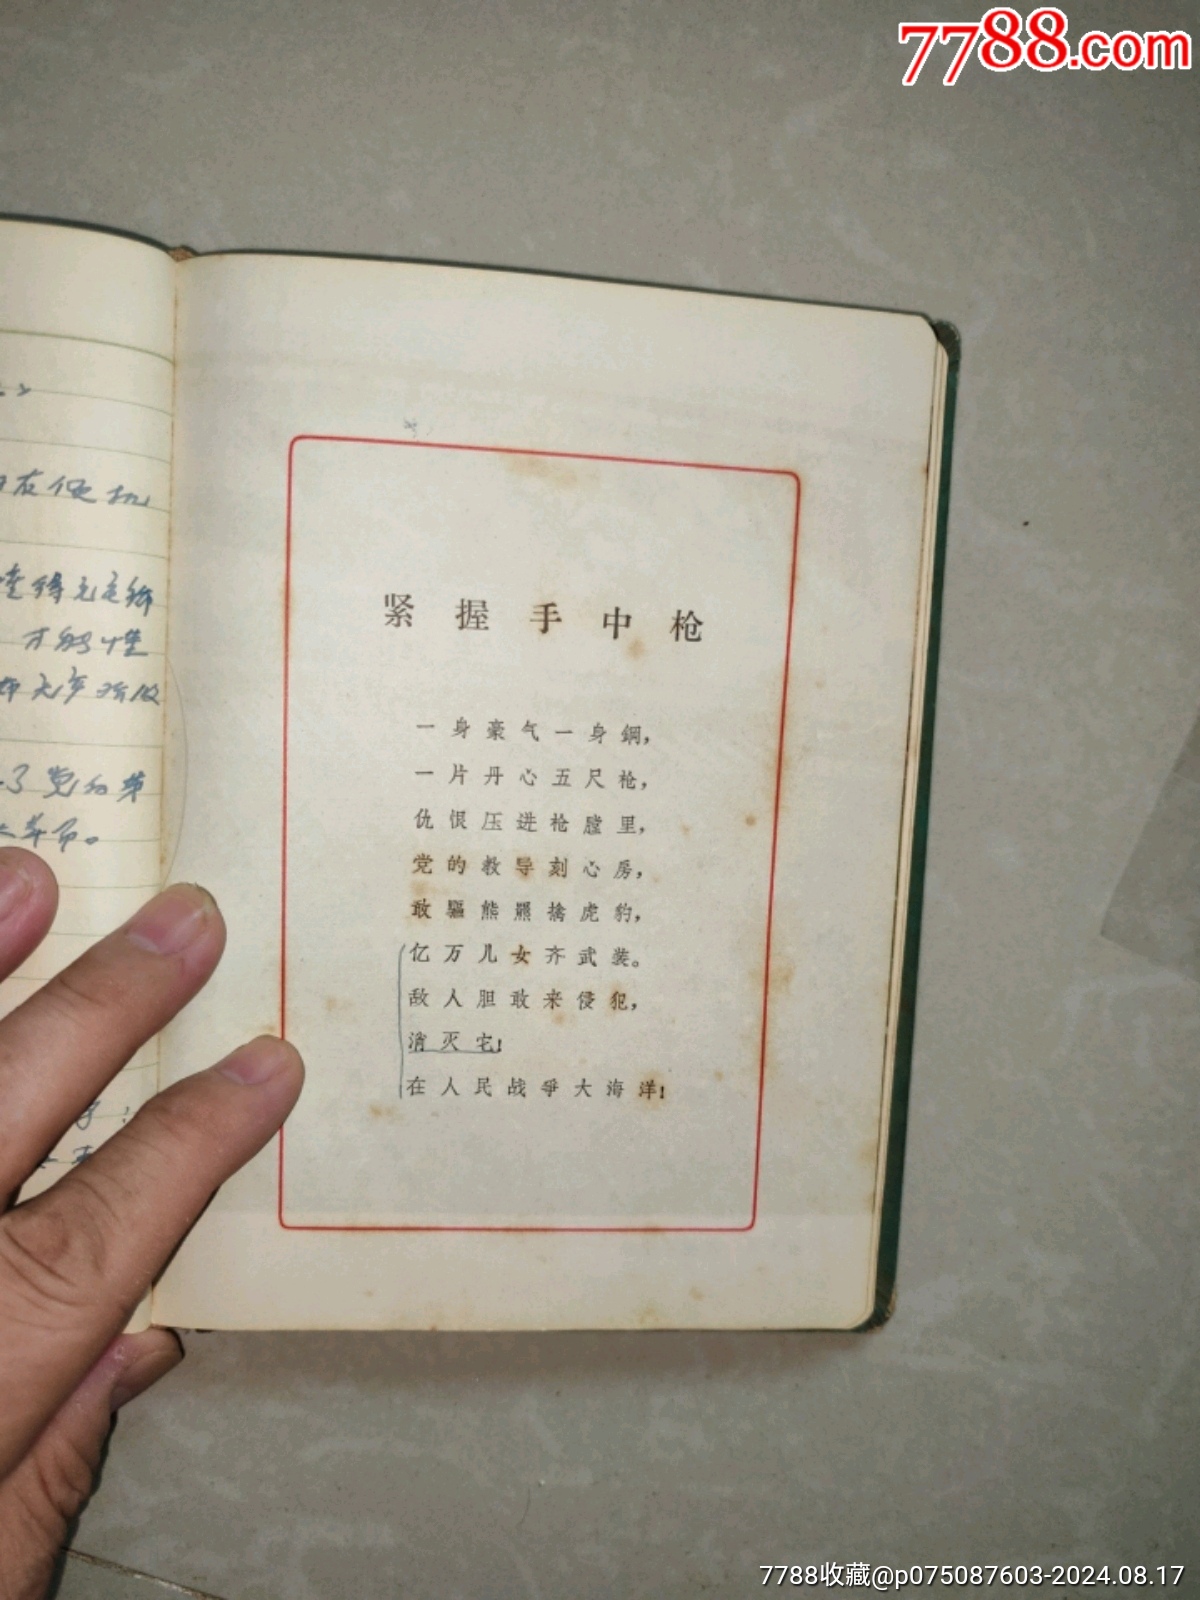 7788.com
在便机
才能懂
了党的第
革命。
紧握手中枪
一身豪气一身鋼，
一片丹心五尺枪，
仇恨压进枪膛里，
党的教导刻心房，
敢驅熊羆擒虎豹，
亿万儿女齐武装。
敌人胆敢来侵犯，
消灭它！
在人民战爭大海洋！
7788收藏@p075087603-2024.08.17